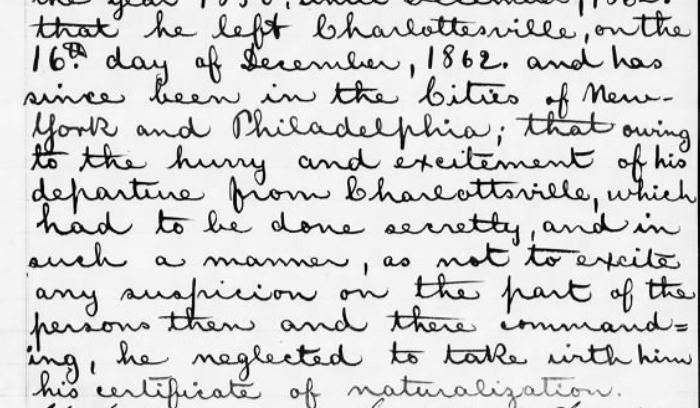 that he left Charlottesville, on the
16th. day of December, 1862. and has
since been in the Cities of New-
York and Philadelphia; that owing
to the hurry and excitement of his
departure from Charlottsville, which
had to be done secretly, and in
such a manner, as not to excite
any suspicion on the part of the
persons then and there command=
ing, he neglected to take with him
his certificate of naturalization.